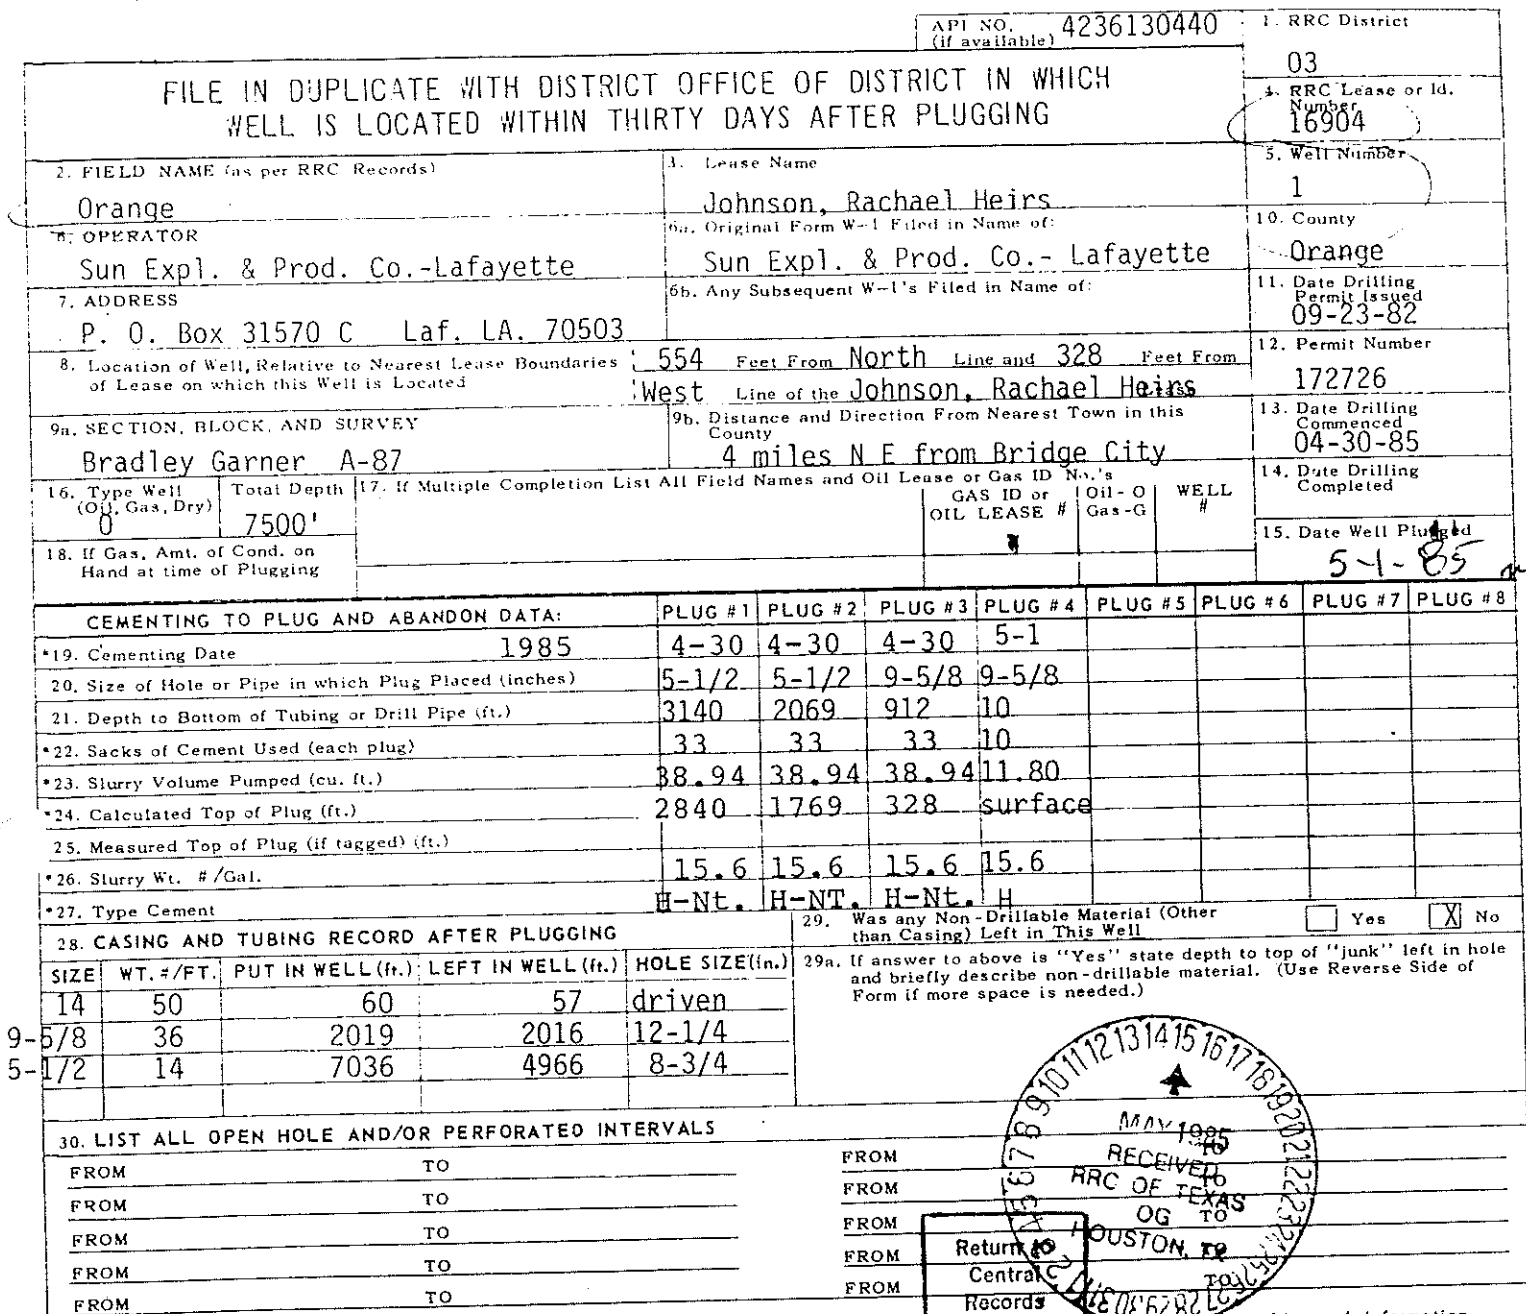 API NO. (if available) 4236130440
1. RRC District
03
FILE IN DUPLICATE WITH DISTRICT OFFICE OF DISTRICT IN WHICH
WELL IS LOCATED WITHIN THIRTY DAYS AFTER PLUGGING
4. RRC Lease or Id. Number
16904
2. FIELD NAME (as per RRC Records)
Orange
3. Lease Name
Johnson, Rachael Heirs
5. Well Number
1
6. OPERATOR
Sun Expl. & Prod. Co.-Lafayette
6a. Original Form W-1 Filed in Name of:
Sun Expl. & Prod. Co.- Lafayette
10. County
Orange
7. ADDRESS
P. O. Box 31570 C Laf. LA. 70503
6b. Any Subsequent W-1's Filed in Name of:
11. Date Drilling Permit Issued
09-23-82
8. Location of Well, Relative to Nearest Lease Boundaries
of Lease on which this Well is Located
554 Feet From North Line and 328 Feet From
West Line of the Johnson, Rachael Heirs Lease
12. Permit Number
172726
9a. SECTION, BLOCK, AND SURVEY
Bradley Garner A-87
9b. Distance and Direction From Nearest Town in this
County
4 miles N E from Bridge City
13. Date Drilling Commenced
04-30-85
16. Type Well (Oil, Gas, Dry)
O
Total Depth
7500'
17. If Multiple Completion List All Field Names and Oil Lease or Gas ID No.'s
GAS ID or OIL LEASE # Oil-O Gas-G WELL #
14. Date Drilling Completed
18. If Gas, Amt. of Cond. on
Hand at time of Plugging
15. Date Well Plugged
5-1-85
CEMENTING TO PLUG AND ABANDON DATA: PLUG #1 PLUG #2 PLUG #3 PLUG #4 PLUG #5 PLUG #6 PLUG #7 PLUG #8
*19. Cementing Date 1985 4-30 4-30 4-30 5-1
20. Size of Hole or Pipe in which Plug Placed (inches) 5-1/2 5-1/2 9-5/8 9-5/8
21. Depth to Bottom of Tubing or Drill Pipe (ft.) 3140 2069 912 10
*22. Sacks of Cement Used (each plug) 33 33 33 10
*23. Slurry Volume Pumped (cu. ft.) 38.94 38.94 38.94 11.80
*24. Calculated Top of Plug (ft.) 2840 1769 328 surface
25. Measured Top of Plug (if tagged) (ft.)
*26. Slurry Wt. #/Gal. 15.6 15.6 15.6 15.6
*27. Type Cement H-Nt. H-NT. H-Nt. H
28. CASING AND TUBING RECORD AFTER PLUGGING
29. Was any Non-Drillable Material (Other
than Casing) Left in This Well
Yes X No
SIZE WT. #/FT. PUT IN WELL (ft.) LEFT IN WELL (ft.) HOLE SIZE (in.)
14 50 60 57 driven
9-5/8 36 2019 2016 12-1/4
5-1/2 14 7036 4966 8-3/4
29a. If answer to above is "Yes" state depth to top of "junk" left in hole
and briefly describe non-drillable material. (Use Reverse Side of
Form if more space is needed.)
30. LIST ALL OPEN HOLE AND/OR PERFORATED INTERVALS
FROM TO FROM TO
FROM TO FROM TO
FROM TO FROM TO
FROM TO FROM TO
FROM TO FROM TO
MAY 1985
RECEIVED
RRC OF TEXAS
OG
HOUSTON,
Return to
Central
Records